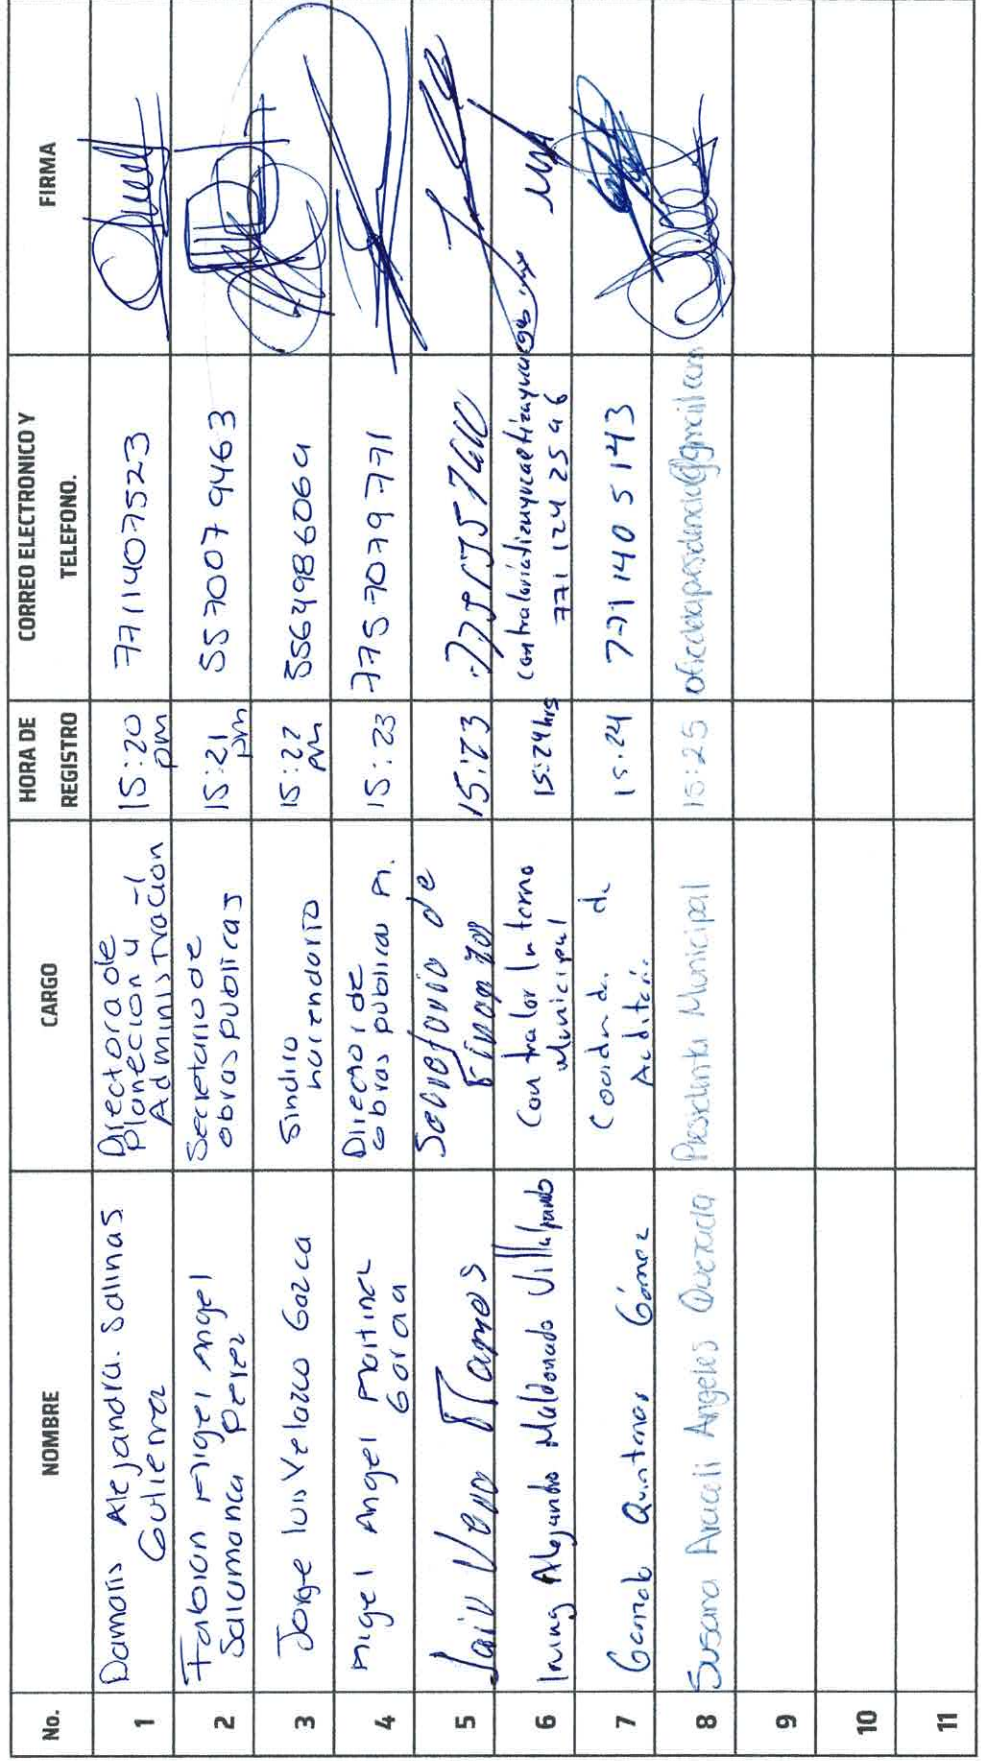 No. NOMBRE CARGO HORA DE REGISTRO CORREO ELECTRONICO Y TELEFONO. FIRMA
1 Damaris Alejandra. Salinas Gutierrez Directora de Planeción y Administración 15:20 pm 7711407523
2 Fabian Miguel Angel Salamanca Perez Secretario de obras publicas 15:21 pm 5570079463
3 Jorge luis Velazco Gazca Sindico hacendario 15:22 pm 5564986069
4 Migel Angel Martinez Director de obras publicas M. 15:23 7757079771
5 Vera Ramos de Finanzas 15:23
6 Irving Alejandro Maldonado Villalpando Contralor Interno Municipal 15:24 hrs 771 124 25 96
7 Quintanar Gómez de 15:24 771 140 5143
8 Susana Araceli Angeles Quezada Presidenta Municipal 15:25
9
10
11